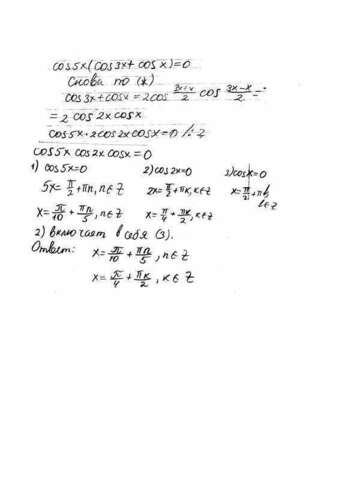 cos5x(cos3x+cosx)=0
Снова по (*)
cos3x+cosx=2cos (3x+x)/2 cos (3x-x)/2 =
=2 cos2x cosx
cos5x·2cos2x cosx=0 /:2
cos5x cos2x cosx=0
1) cos5x=0 2) cos2x=0 3) cosx=0
5x=π/2+πn, n∈Z 2x=π/2+πk, k∈Z x=π/2+πl,
l∈Z
x=π/10+πn/5, n∈Z x=π/4+πk/2, k∈Z
2) включает в себя (3).
Ответ: x=π/10+πn/5, n∈Z
x=π/4+πk/2, k∈Z